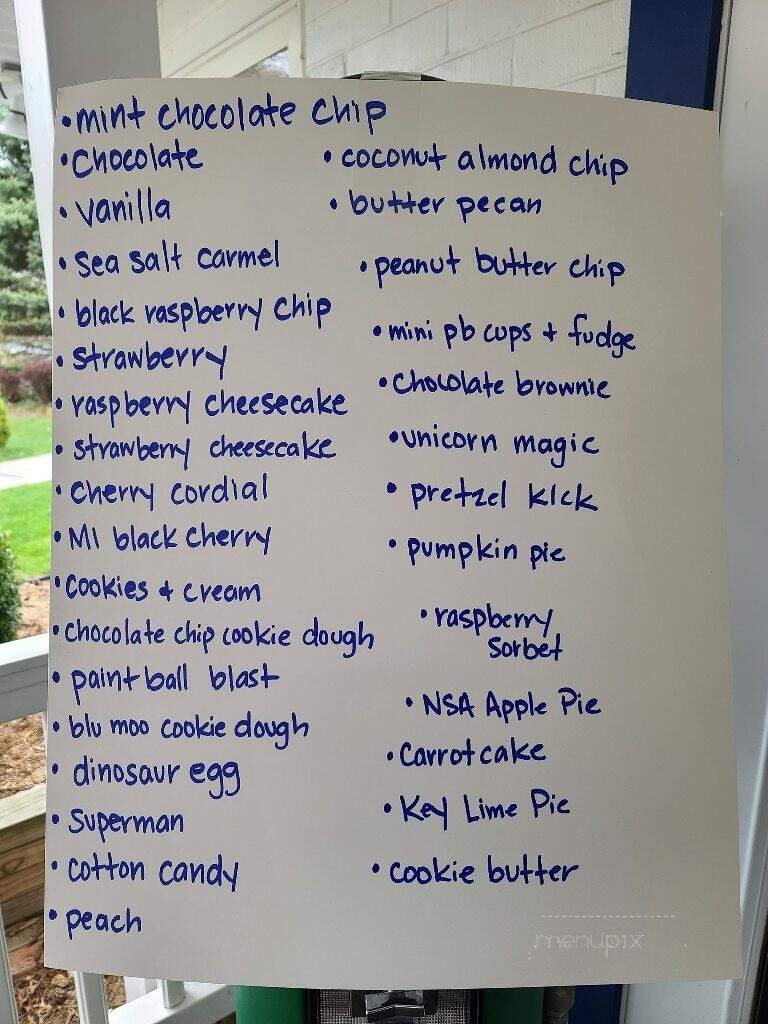 • mint chocolate chip
• Chocolate
• vanilla
• sea salt carmel
• black raspberry chip
• strawberry
• raspberry cheesecake
• strawberry cheesecake
• cherry cordial
• MI black cherry
• cookies & cream
• chocolate chip cookie dough
• paint ball blast
• blu moo cookie dough
• dinosaur egg
• superman
• cotton candy
• peach
• coconut almond chip
• butter pecan
• peanut butter chip
• mini pb cups + fudge
• chocolate brownie
• unicorn magic
• pretzel kick
• pumpkin pie
• raspberry
sorbet
• NSA Apple Pie
• Carrot cake
• Key Lime Pie
• cookie butter
menupix